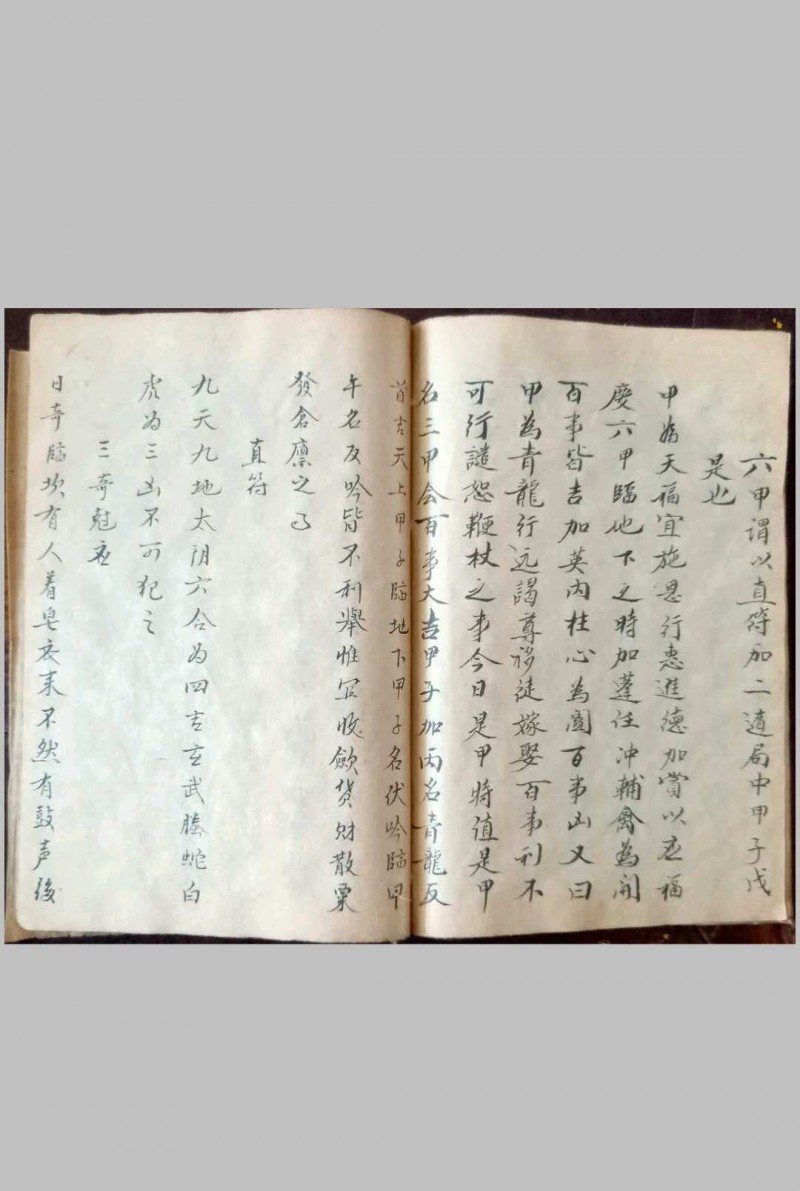 六甲谓以直符加二遁局中甲子戊
是也
甲为天福宜施恩行惠進德加賞以应福
慶六甲臨地下之時加蓬任冲輔禽為開
百事皆吉加英内柱心為闔百事凶又曰
甲為青龍行远謁尊移徒嫁娶百事利不
可行譴恕鞭杖之事今日是甲時值是甲
名三甲会百事大吉甲子加丙名青龍反
首吉天上甲子臨地下甲子名伏吟臨甲
午名反吟皆不利舉惟宜收歛貨财散粟
發倉廪之事
直符
九天九地太阴六合为四吉玄武螣蛇白
虎为三凶不可犯之
三奇尅应
日奇臨坎有人着皂衣来不然有鼓声後